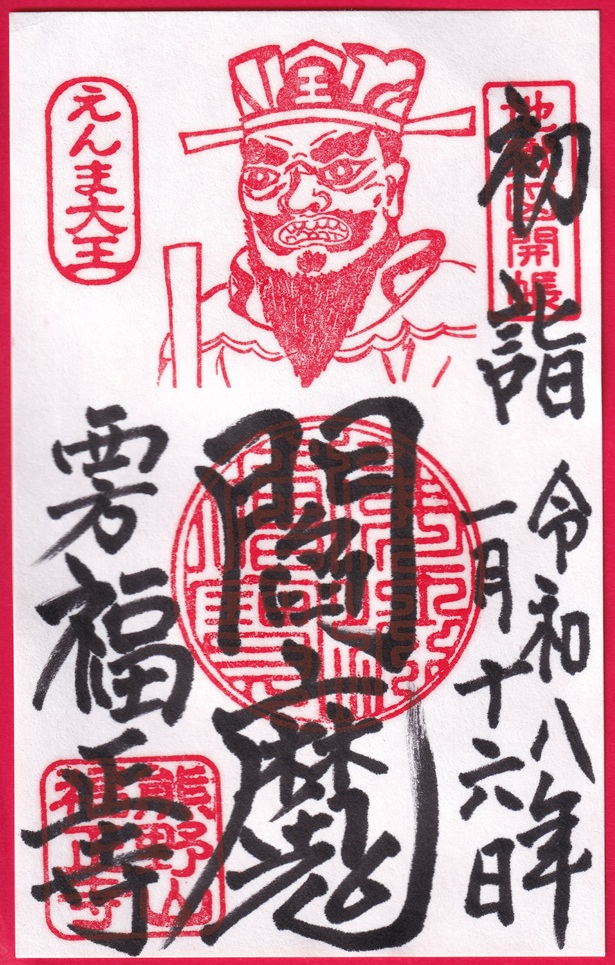 初詣
開帳
令和八年
一月十六日
王
閻魔
えんま大王
福正寺
熊野山
福正寺